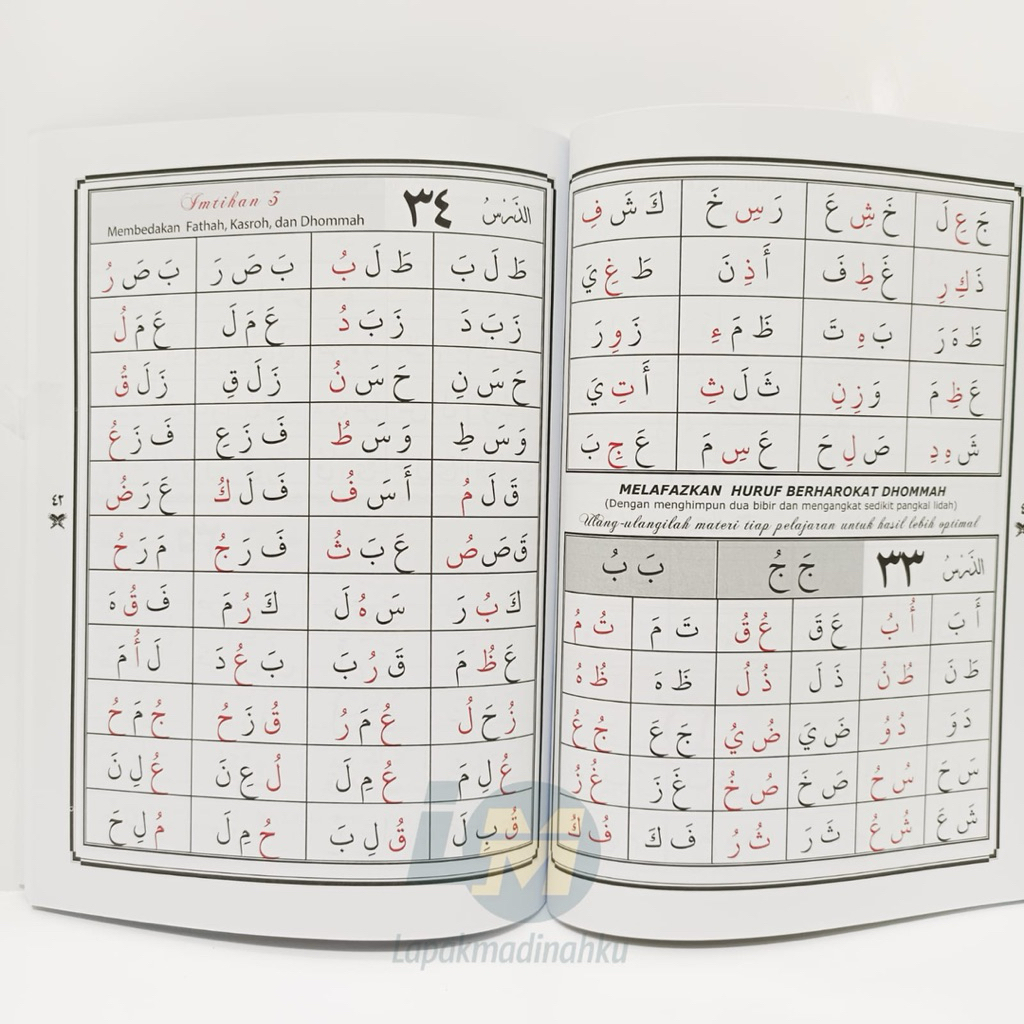 جَ عِ لَ خَ شِ عَ رَ سِ خَ كَ شَ فِ
ذَ كِ رِ غَ طِ فَ أَ ذِ نَ طَ غِ يَ
ظَ هَ رَ بَ هِ تَ ظَ مَ ءِ زَ وِ رَ
عَ ظِ مَ وَ زِ نِ ثَ لَ ثِ أَ تِ يَ
شَ هِ دِ صَ لِ حَ عَ سِ مَ عَ جِ بَ
MELAFAZKAN HURUF BERHAROKAT DHOMMAH
(Dengan menghimpun dua bibir dan mengangkat sedikit pangkal lidah)
Ulang-ulangilah materi tiap pelajaran untuk hasil lebih optimal
الدَّرْسُ ٣٣ جَ جُ بَ بُ
أَ بَ أُ بُ عَ قَ عُ قُ تَ مَ تُ مُ
طَ نَ طُ نُ ذَ لَ ذُ لُ ظَ هَ ظُ هُ
دَ وَ دُ وُ ضَ يَ ضُ يُ جَ عَ جُ عُ
سَ حَ سُ حُ صَ خَ صُ خُ غَ زَ غُ زُ
شَ عَ شُ عُ ثَ رَ ثُ رُ فَ كَ فُ كُ
الدَّرْسُ ٣٤
Imtihan 3
Membedakan Fathah, Kasroh, dan Dhommah
طَ لَ بَ طَ لَ بُ بَ صَ رَ بَ صَ رُ
زَ بَ دَ زَ بَ دُ عَ مَ لَ عَ مَ لُ
حَ سَ نِ حَ سَ نُ زَ لَ قِ زَ لَ قُ
وَ سَ طِ وَ سَ طُ فَ زَ عِ فَ زَ عُ
قَ لَ مُ أَ سَ فُ فَ لَ كُ عَ رَ ضُ
قَ صَ صُ عَ بَ ثُ فَ رَ جُ مَ رَ حُ
كَ بُ رَ سَ هُ لَ كَ رُ مَ فَ قُ هَ
عَ ظُ مَ قَ رُ بَ بَ عُ دَ لَ أُ مَ
زُ حَ لُ عُ مَ رُ قُ زَ حُ جُ مَ حُ
عُ لِ مَ عُ مِ لَ لُ عِ نَ عُ لِ نَ
قُ بِ لَ قُ لِ بَ حُ مِ لَ مُ لِ حَ
٤٢
LM
Lapakmadinahku